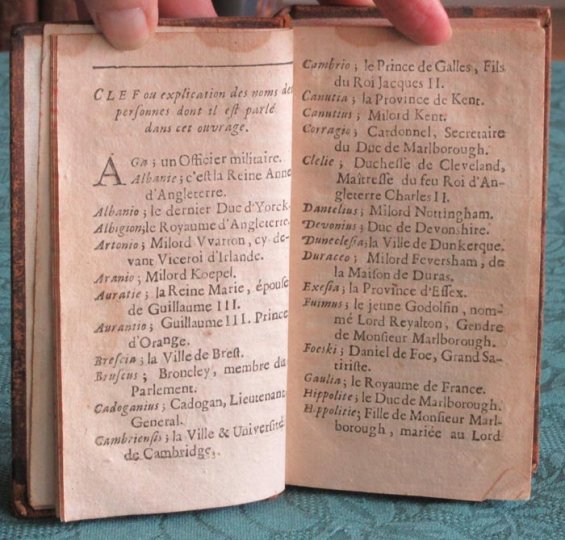 CLEF ou explication des noms des
personnes dont il est parlé
dans cet ouvrage.
AGa ; un Officier militaire.
Albante ; c'est la Reine Anne
d'Angleterre.
Albanio ; le dernier Duc d'Yorck.
Albigion, le Royaume d'Angleterre.
Artonio ; Milord Vvarton, cy-de-
vant Viceroi d'Irlande.
Aranio ; Milord Koepel.
Auratie ; la Reine Marie, épouse
de Guillaume III.
Aurantio ; Guillaume III. Prince
d'Orange.
Brescia ; la Ville de Brest.
Bruscus ; Bromley, membre du
Parlement.
Cadoganius ; Cadogan, Lieutenant
General.
Cambriensis ; la Ville & Université
de Cambridge.
Cambrio ; le Prince de Galles, Fils
du Roi Jacques II.
Canutia ; la Province de Kent.
Canutius ; Milord Kent.
Corragio ; Cardonnel, Secretaire
du Duc de Marlborough.
Clelie ; Duchesse de Cleveland,
Maîtresse du feu Roi d'An-
gleterre Charles II.
Dantelius ; Milord Nottingham.
Devonius ; Duc de Devonshire.
Duneclesia, la Ville de Dunkerque.
Duracco ; Milord Feversham, de
la Maison de Duras.
Exesia ; la Province d'Essex.
Fuimus ; le jeune Godolfin, nom-
mé Lord Reyalton, Gendre
de Monsieur Marlborough.
Foeski ; Daniel de Foe, Grand Sa-
tiriste.
Gaulia ; le Royaume de France.
Hippolite ; le Duc de Marlborough.
Hippolitie ; Fille de Monsieur Marl-
borough, mariée au Lord